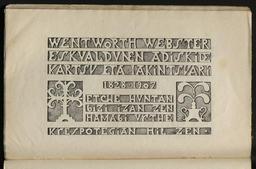 WENTWORTH WEBSTER
ESKVALDVNEN ADISKIDE
KARTSV ETA JAKINTSVARI
1828-1907
ETCHE HVNTAN
BIZI IZAN ZEN
HAMABI VRTHE
HIL ZEN